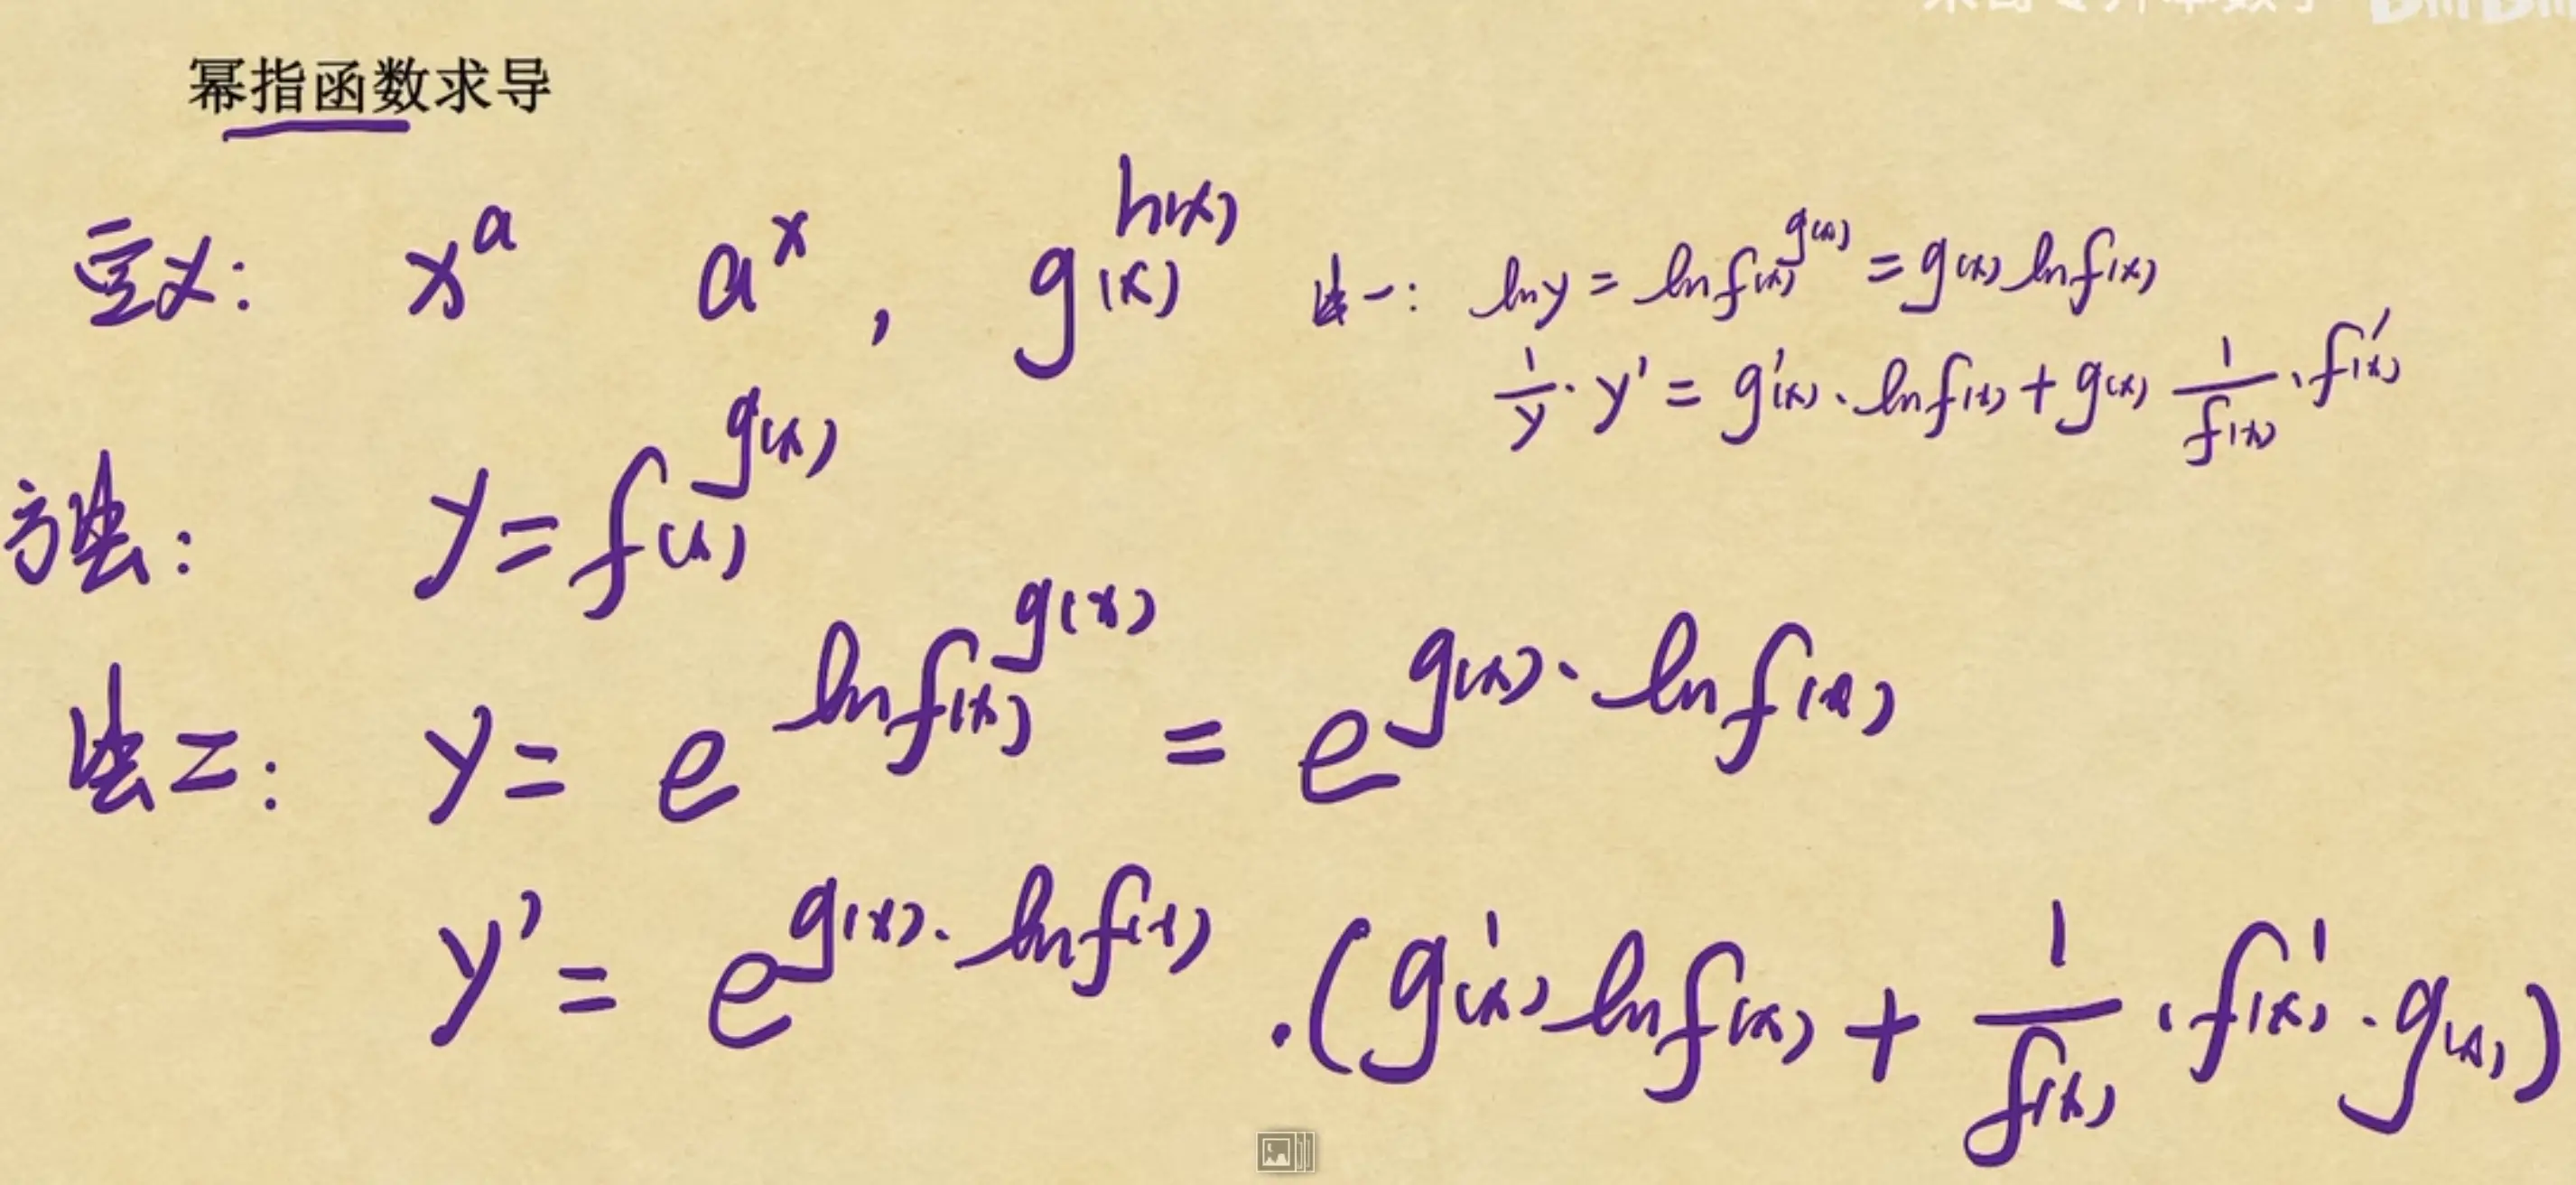 幂指函数求导
定义: x^a a^x , g(x)^h(x)
法一: ln y = ln f(x)^g(x) = g(x) ln f(x)
1/y · y' = g'(x) · ln f(x) + g(x) 1/f(x) · f'(x)
方法: y = f(x)^g(x)
法二: y = e^(ln f(x)^g(x)) = e^(g(x) · ln f(x))
y' = e^(g(x) · ln f(x)) · (g'(x) ln f(x) + 1/f(x) · f'(x) · g(x))